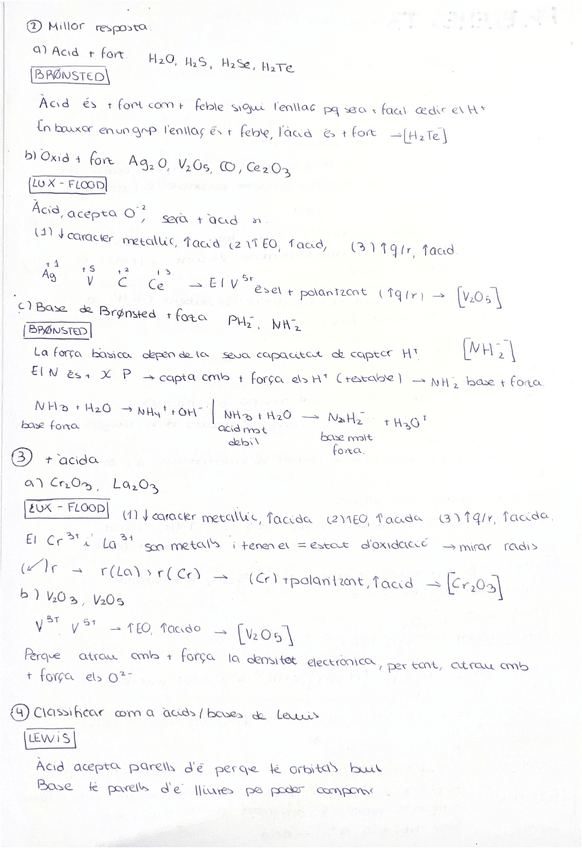 ② Millor resposta
a) Àcid + fort H₂O, H₂S, H₂Se, H₂Te
BRØNSTED
Àcid és + fort com + feble sigui l'enllaç pq serà + fàcil cedir el H⁺
En baixar en un grup l'enllaç és + feble, l'àcid és + fort → [H₂Te]
b) Òxid + fort Ag₂O, V₂O₅, CO, Ce₂O₃
LUX - FLOOD
Àcid, acepta O⁻², serà + àcid
(1) ↓ caràcter metàl·lic, ↑àcid (2) ↑EO, ↑àcid, (3) ↑q/r, ↑àcid.
+1 +5 +2 +3
Ag V C Ce → El V⁵⁺ és el + polaritzant (↑q/r) → [V₂O₅]
c) Base de Brønsted + forta PH₂⁻, NH₂⁻
BRØNSTED
La força bàsica depèn de la seva capacitat de captar H⁺ [NH₂⁻]
El N és + X P → capta amb + força els H⁺ (+estable) → NH₂⁻ base + forta
NH₃ + H₂O → NH₄⁺ + OH⁻ | NH₃ + H₂O → NH₂⁻ + H₃O⁺
base forta àcid molt dèbil base molt forta.
③ + àcida
a) Cr₂O₃, La₂O₃
LUX - FLOOD (1) ↓ caràcter metàl·lic, ↑àcida (2) ↑EO, ↑àcida (3) ↑q/r, ↑àcida.
El Cr³⁺ i La³⁺ són metalls i tenen el = estat d'oxidació → mirar radis
r → r(La) > r(Cr) → (Cr) + polaritzant, ↑àcid → [Cr₂O₃]
b) V₂O₃, V₂O₅
V³⁺ V⁵⁺ → ↑EO, ↑àcido → [V₂O₅]
Perquè atrau amb + força la densitat electrònica, per tant, atrau amb
+ força els O²⁻
④ Classificar com a àcids/bases de Lewis
LEWIS
Àcid acepta parells d'é perquè té orbitals buits
Base té parells d'é lliures per poder compartir.